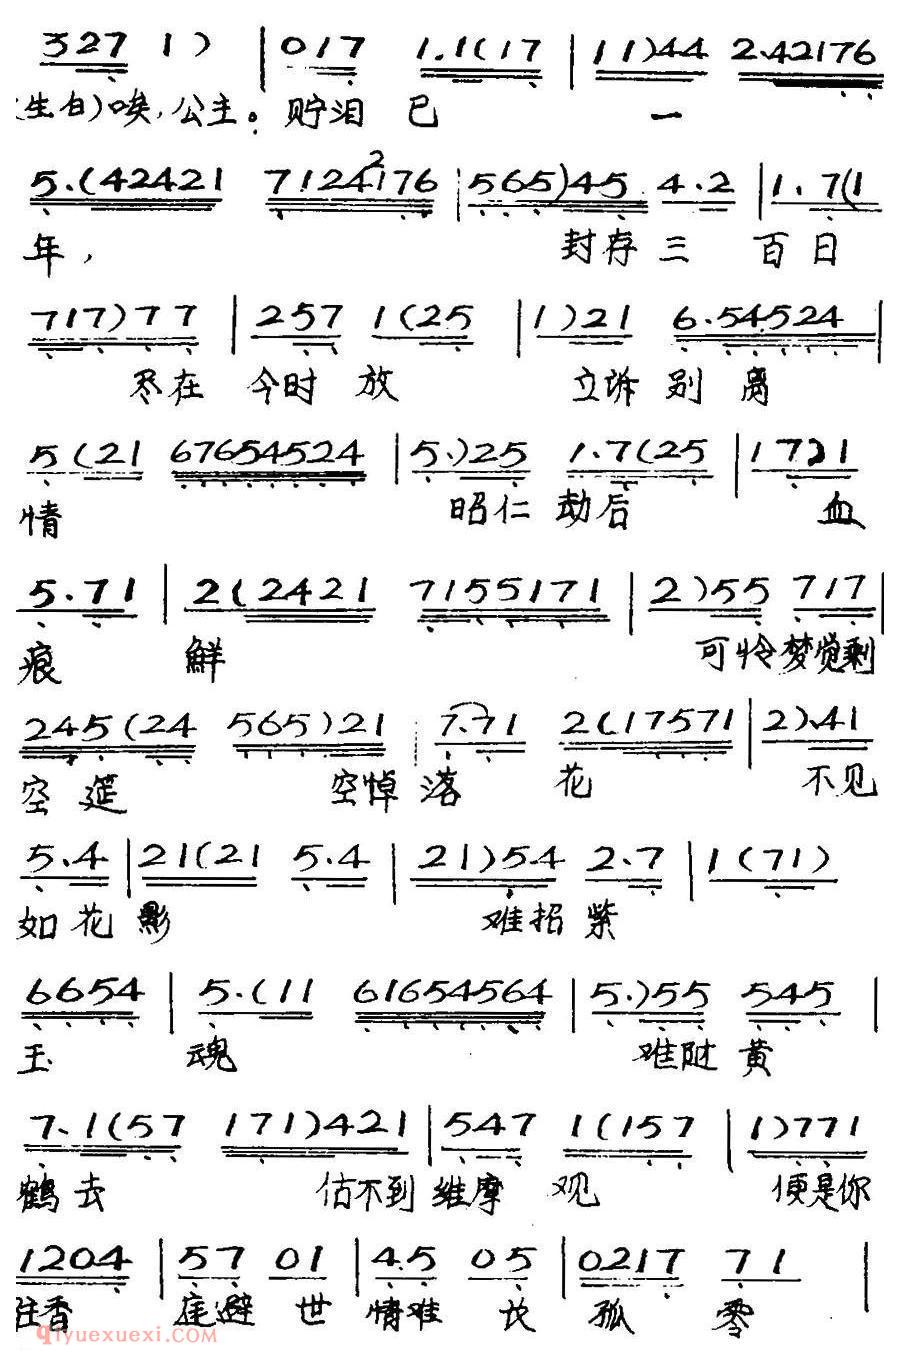 327 1) | 017 1.1(17 | 11)44 2.42176
(生白)唉,公主。贮泪已一
5.(42421 7124176 2 | 565)45 4.2 | 1.7(1
年, 封存三百日
717)77 | 257 1(25 | 1)21 6.54524 |
尽在今时放 立诉别离
5(21 67654524 | 5.)25 1.7(25 | 1721
情 昭仁劫后 血
5.71 | 2(2421 7155171 | 2)55 717 |
痕鲜 可怜梦觉剩
245(24 565)21 | 7.71 2(17571 | 2).41
空筵 空悼落花 不见
5.4 | 21(21 5.4 | 21)54 2.7 | 1(71)
如花影 难招紫
6654 | 5.(11 61654564 | 5.)55 545 |
玉魂 难随黄
7.1(57 171)421 | 547 1(157 | 1)771
鹤去 估不到维摩观 便是你
1204 | 57 01 | 4.5 05 | 0217 71 |
香 避世情难 孤零
qiyuexuexi.com